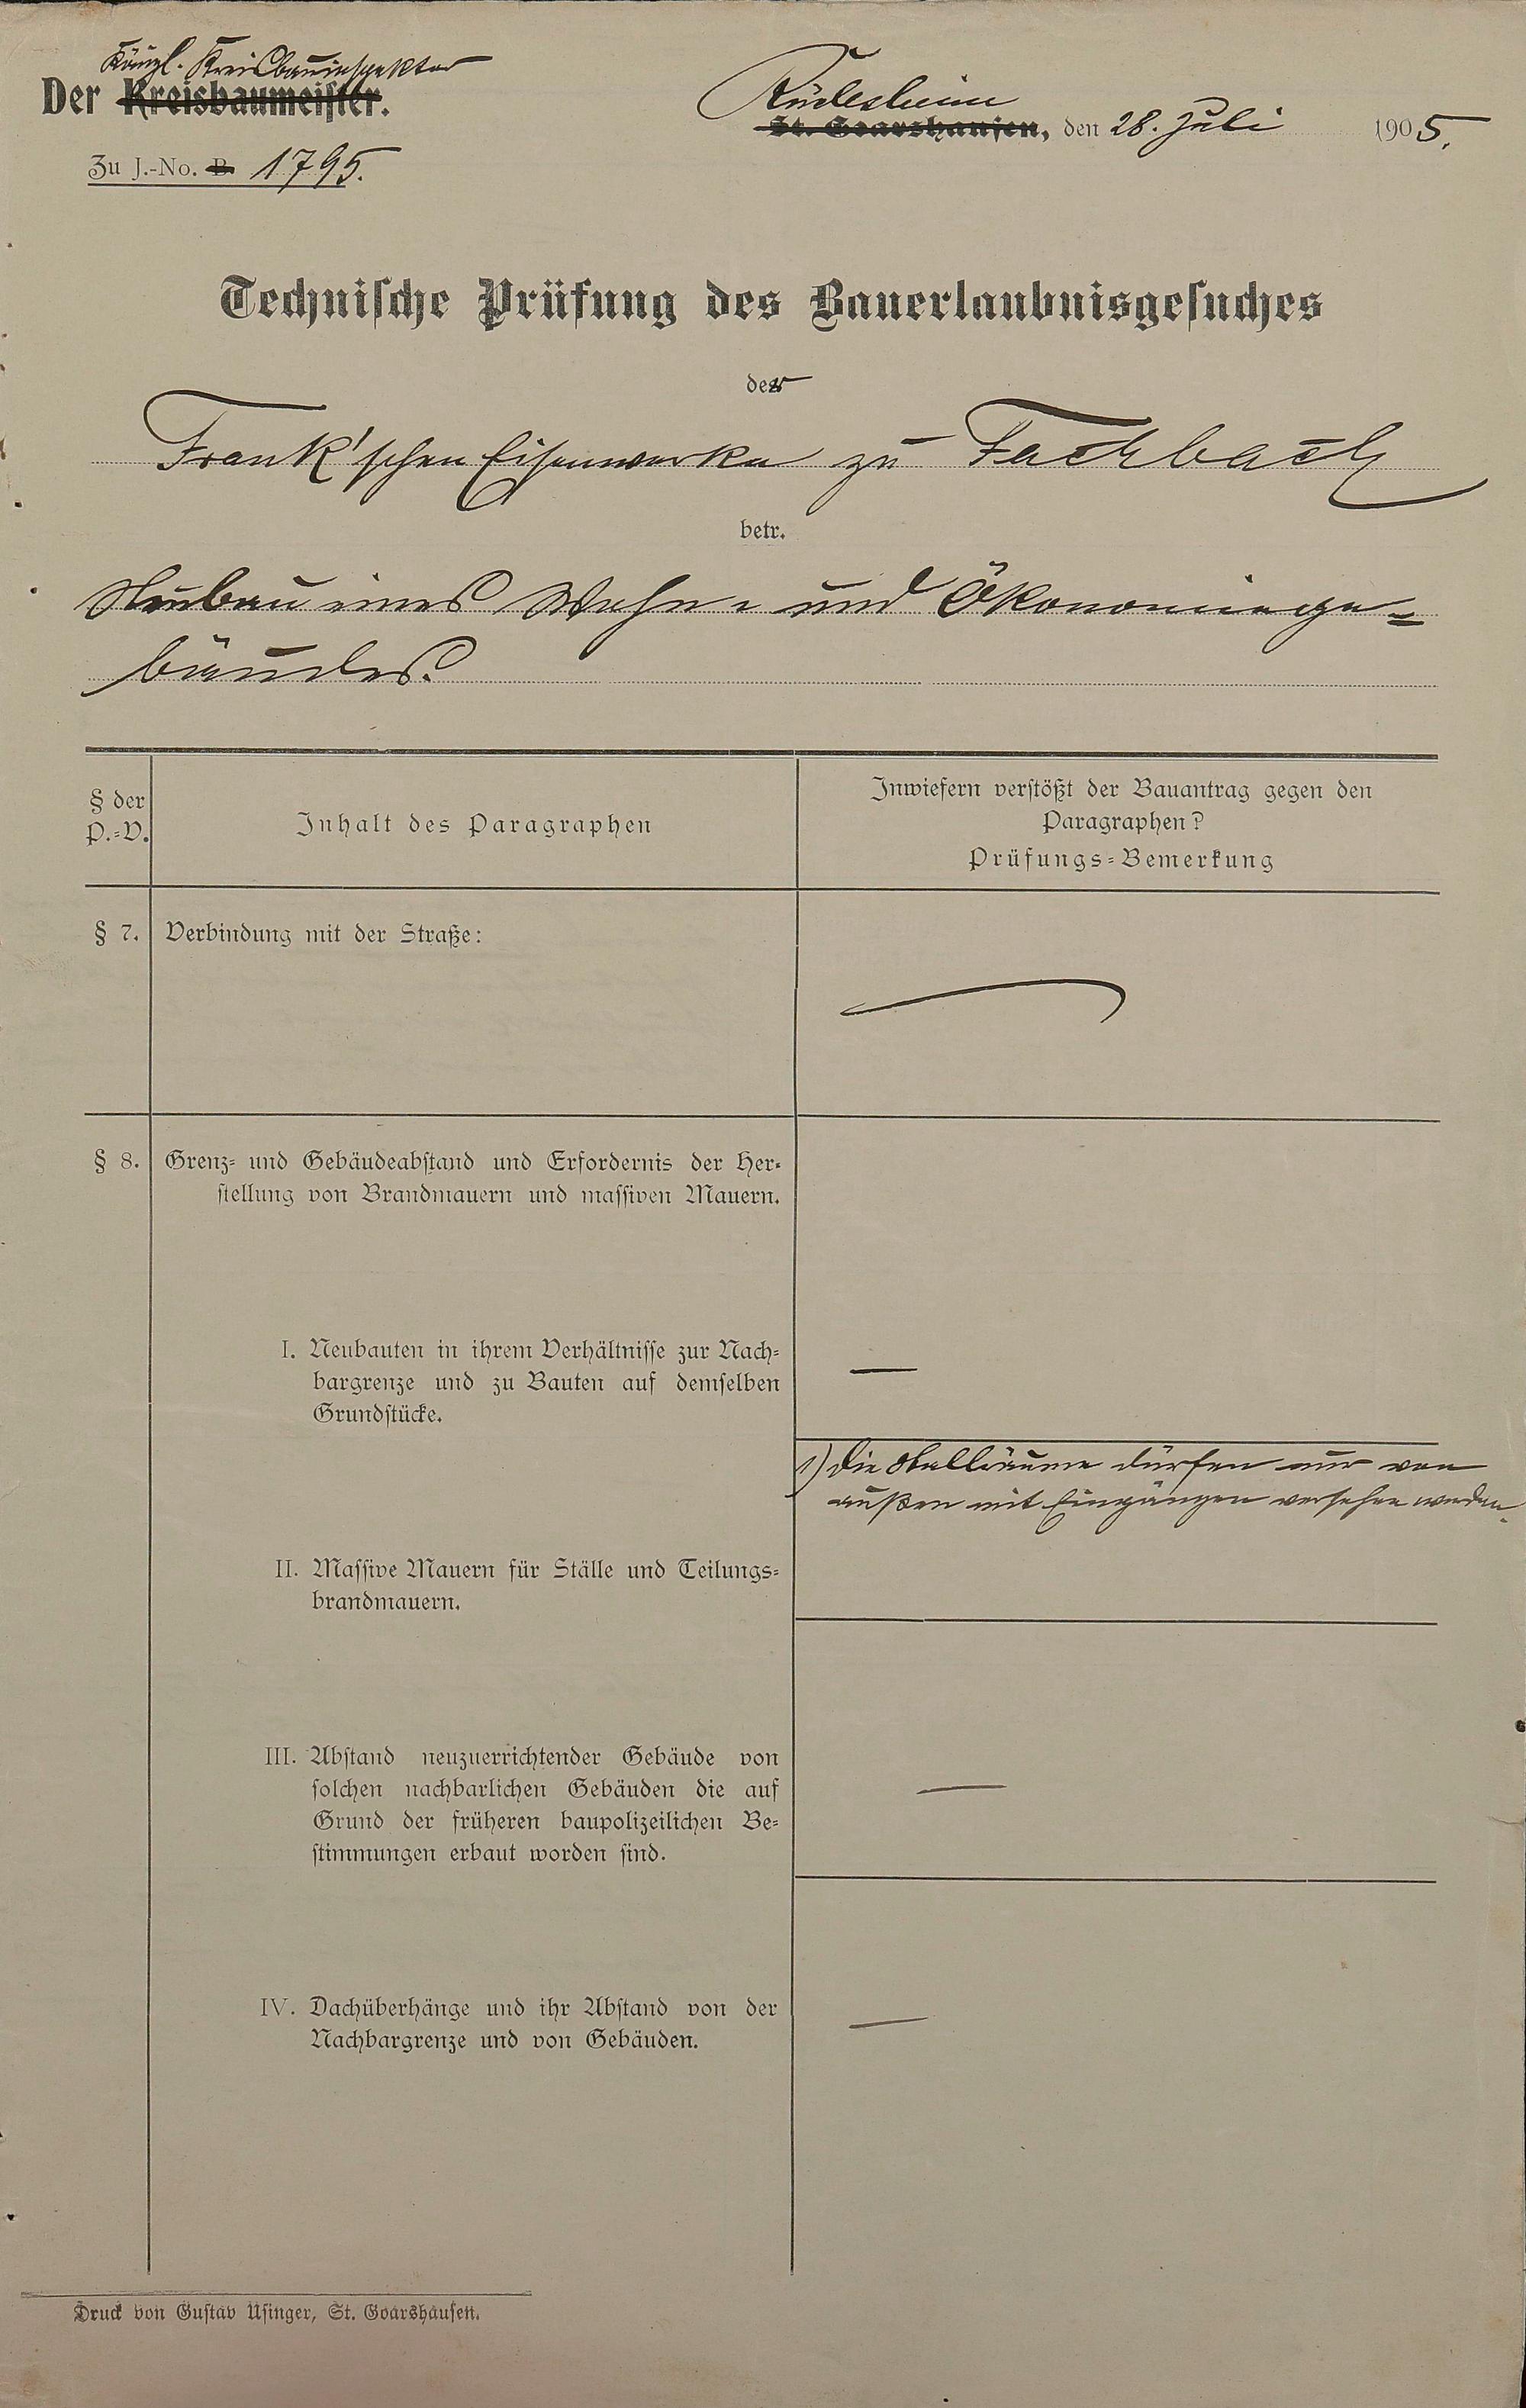 Königl. Kreisbauinspektor
Der Kreisbaumeister.
Rüdesheim
St. Goarshausen, den 28. Juli 1905.
Zu J.-No. B. 1795.
Technische Prüfung des Bauerlaubnisgesuches
der
Frank'schen Eisenwerke zu Fachbach
betr.
Neubau eines Wohn- und Ökonomiege=
bäudes.
§ der
P.=V.
Inhalt des Paragraphen
Inwiefern verstößt der Bauantrag gegen den
Paragraphen?
Prüfungs=Bemerkung
§ 7. Verbindung mit der Straße:
§ 8. Grenz= und Gebäudeabstand und Erfordernis der Her=
stellung von Brandmauern und massiven Mauern.
I. Neubauten in ihrem Verhältnisse zur Nach=
bargrenze und zu Bauten auf demselben
Grundstücke.
1) Die Stallräume dürfen nur von
außen mit Eingängen versehen werden.
II. Massive Mauern für Ställe und Teilungs=
brandmauern.
III. Abstand neuzuerrichtender Gebäude von
solchen nachbarlichen Gebäuden die auf
Grund der früheren baupolizeilichen Be=
stimmungen erbaut worden sind.
IV. Dachüberhänge und ihr Abstand von der
Nachbargrenze und von Gebäuden.
Druck von Gustav Usinger, St. Goarshausen.